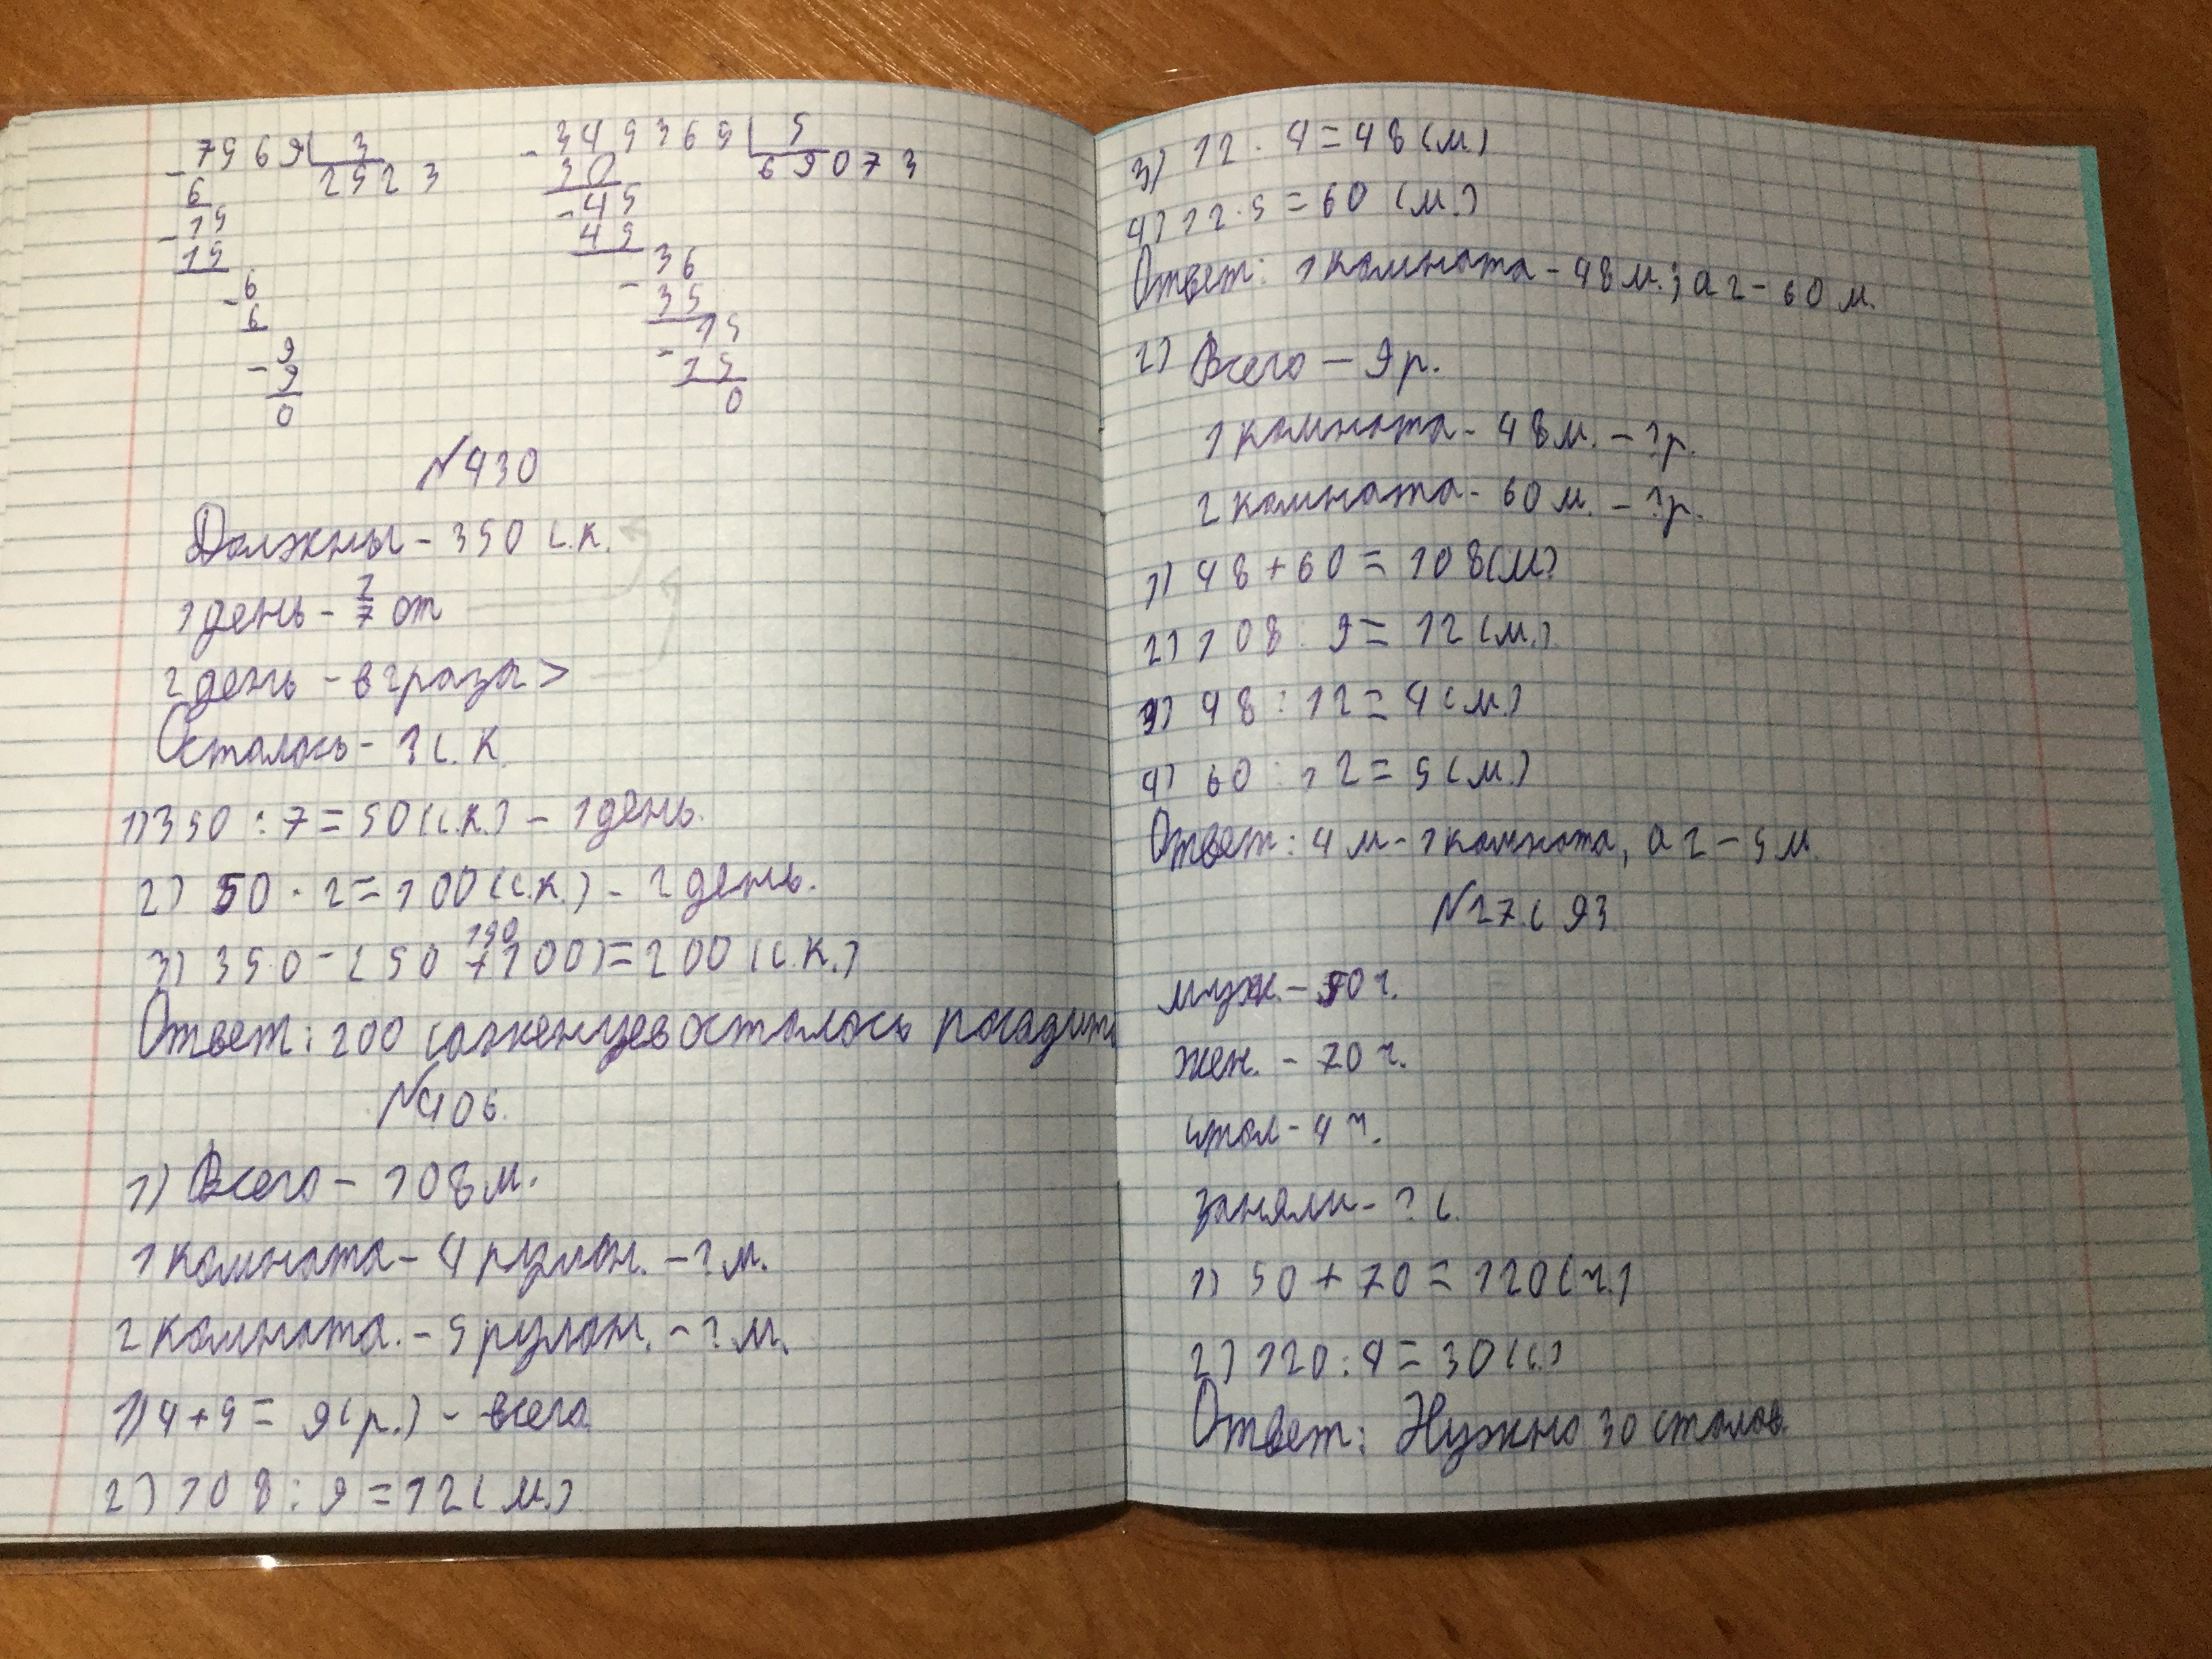 7569 3
6 2523
15
15
6
6
9
9
0
345365 5
30 69073
45
45
36
35
15
15
0
№430
Должны - 350 с.к.
1 день - 1/7 от
2 день - в 2 раза >
Осталось - ? с.к.
1) 350 : 7 = 50 (с.к.) - 1 день.
2) 50 · 2 = 100 (с.к.) - 2 день.
150
3) 350 - (50 + 100) = 200 (с.к.)
Ответ: 200 саженцев осталось посадить
№406.
1) Всего - 108 м.
1 комната - 4 рулон. - ? м.
2 комната. - 5 рулон. - ? м.
1) 4 + 5 = 9 (р.) - всего.
2) 108 : 9 = 12 (м.)
3) 12 · 4 = 48 (м.)
4) 12 · 5 = 60 (м.)
Ответ: 1 комната - 48 м.; а 2 - 60 м.
2) Всего - 9 р.
1 комната - 48 м. - ? р.
2 комната - 60 м. - ? р.
1) 48 + 60 = 108 (м)
2) 108 : 9 = 12 (м.)
3) 48 : 12 = 4 (м.)
4) 60 : 12 = 5 (м.)
Ответ: 4 м - 1 комната, а 2 - 5 м.
№27 с 93
муж. - 50 ч.
жен. - 70 ч.
стол - 4 ч.
заняли - ? с.
1) 50 + 70 = 120 (ч.)
2) 120 : 4 = 30 (с.)
Ответ: Нужно 30 столов.